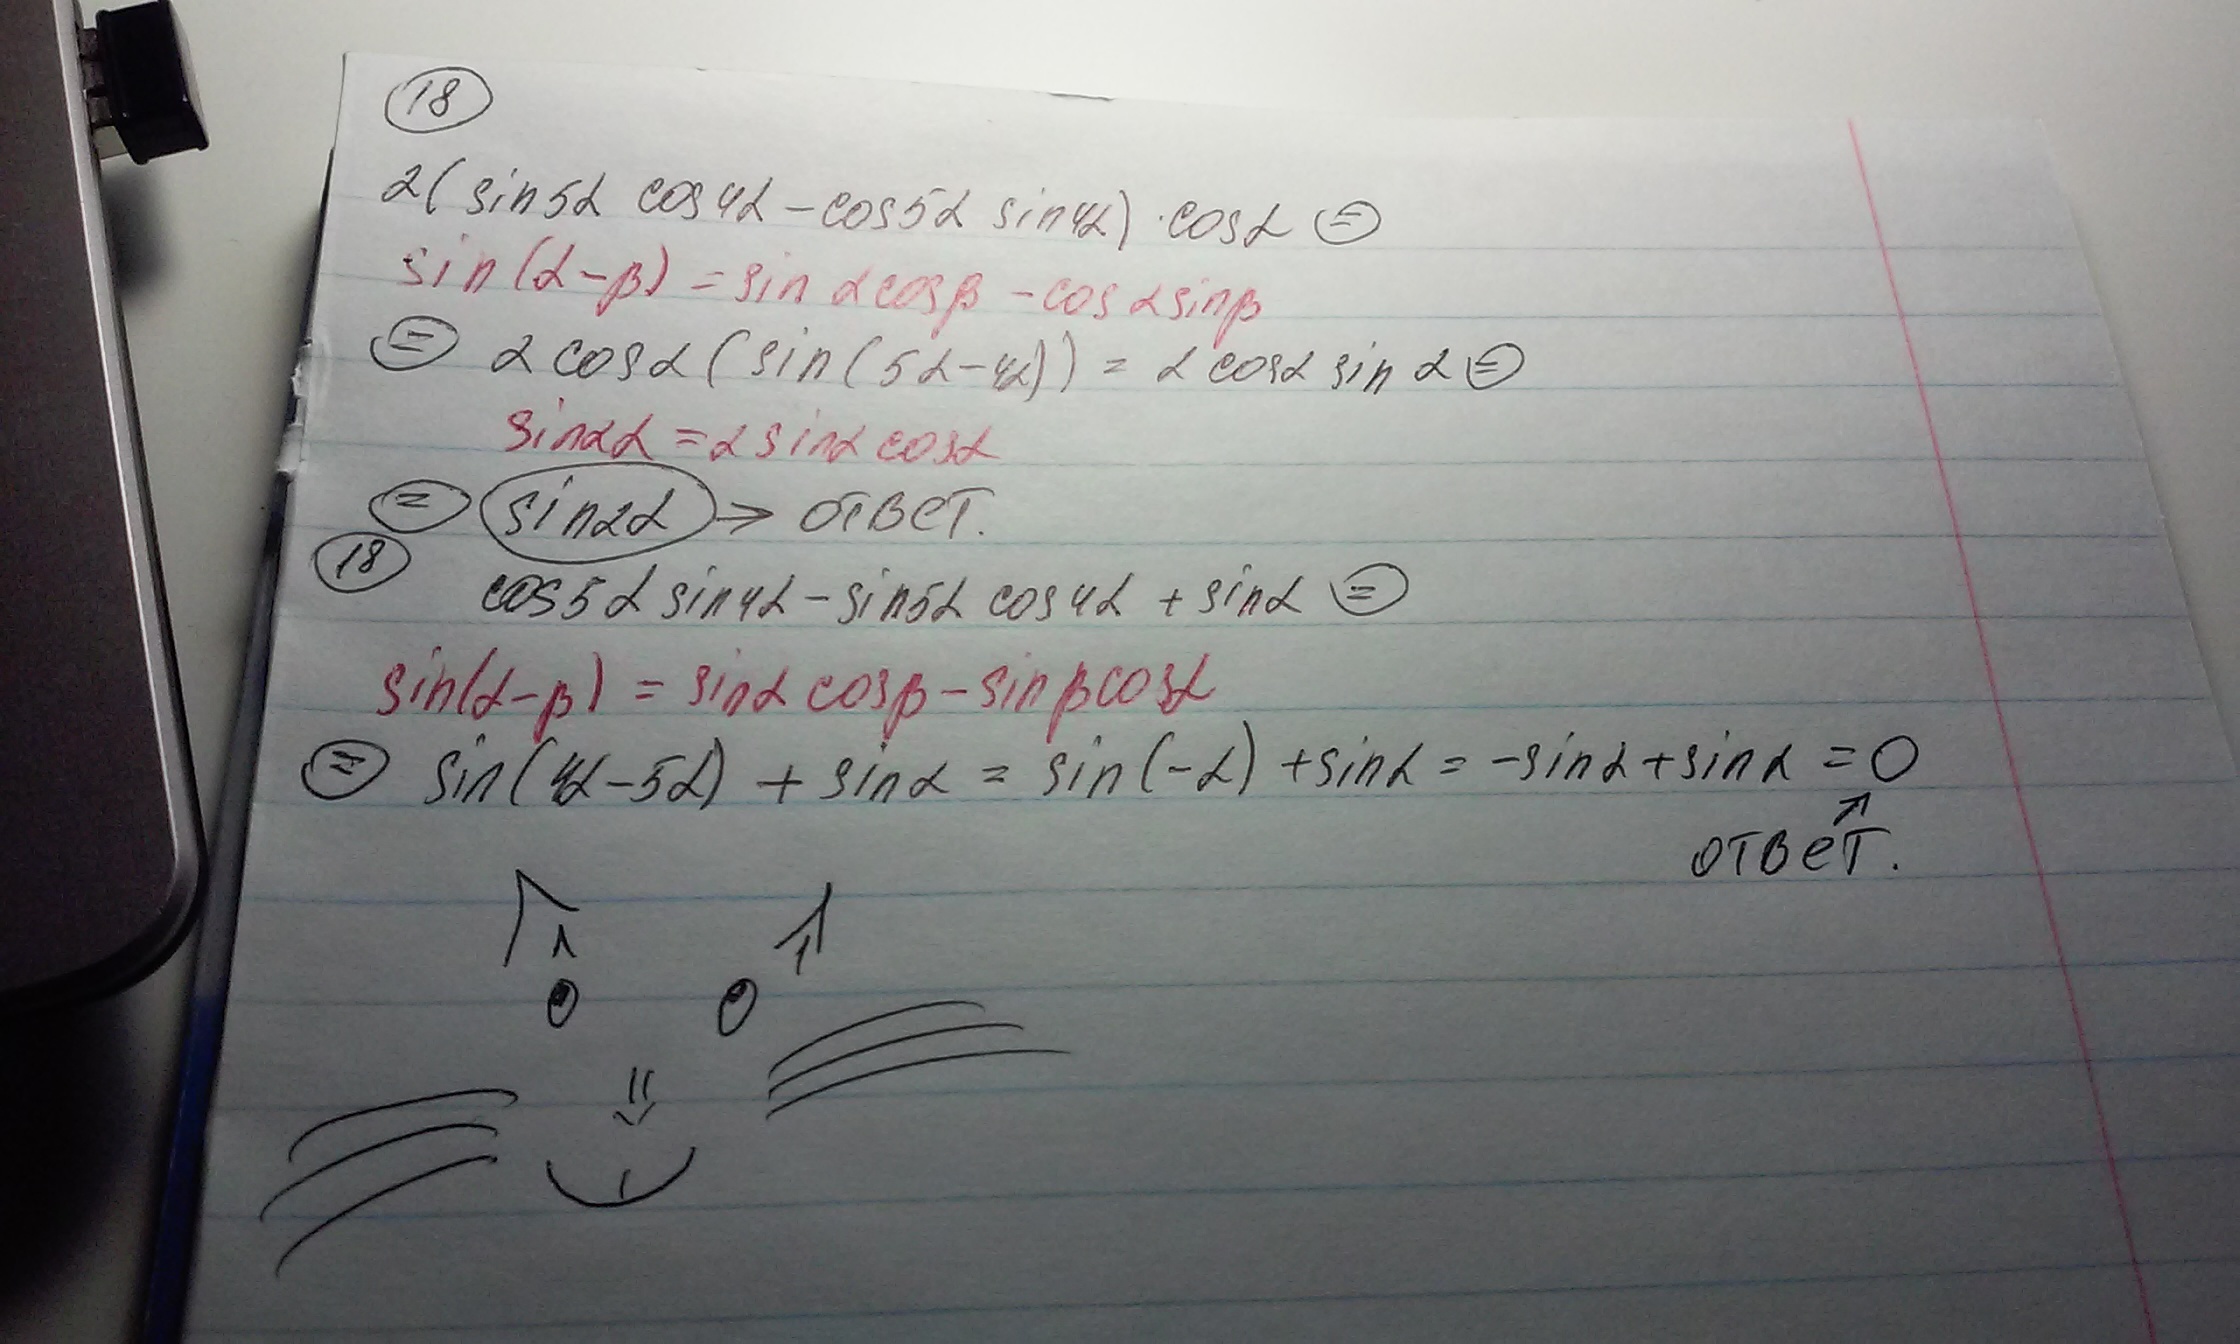 18
2(sin5α cos4α – cos5α sin4α) · cosα =
sin(α – β) = sin α cosβ – cos α sinβ
= 2cosα (sin(5α – 4α)) = 2 cosα sin α =
sin2α = 2 sinα cosα
= sin2α → ответ.
18
cos5α sin4α – sin5α cos4α + sinα =
sin(α – β) = sinα cosβ – sinβ cosα
= sin(4α – 5α) + sinα = sin(–α) + sinα = –sinα + sinα = 0
ответ.